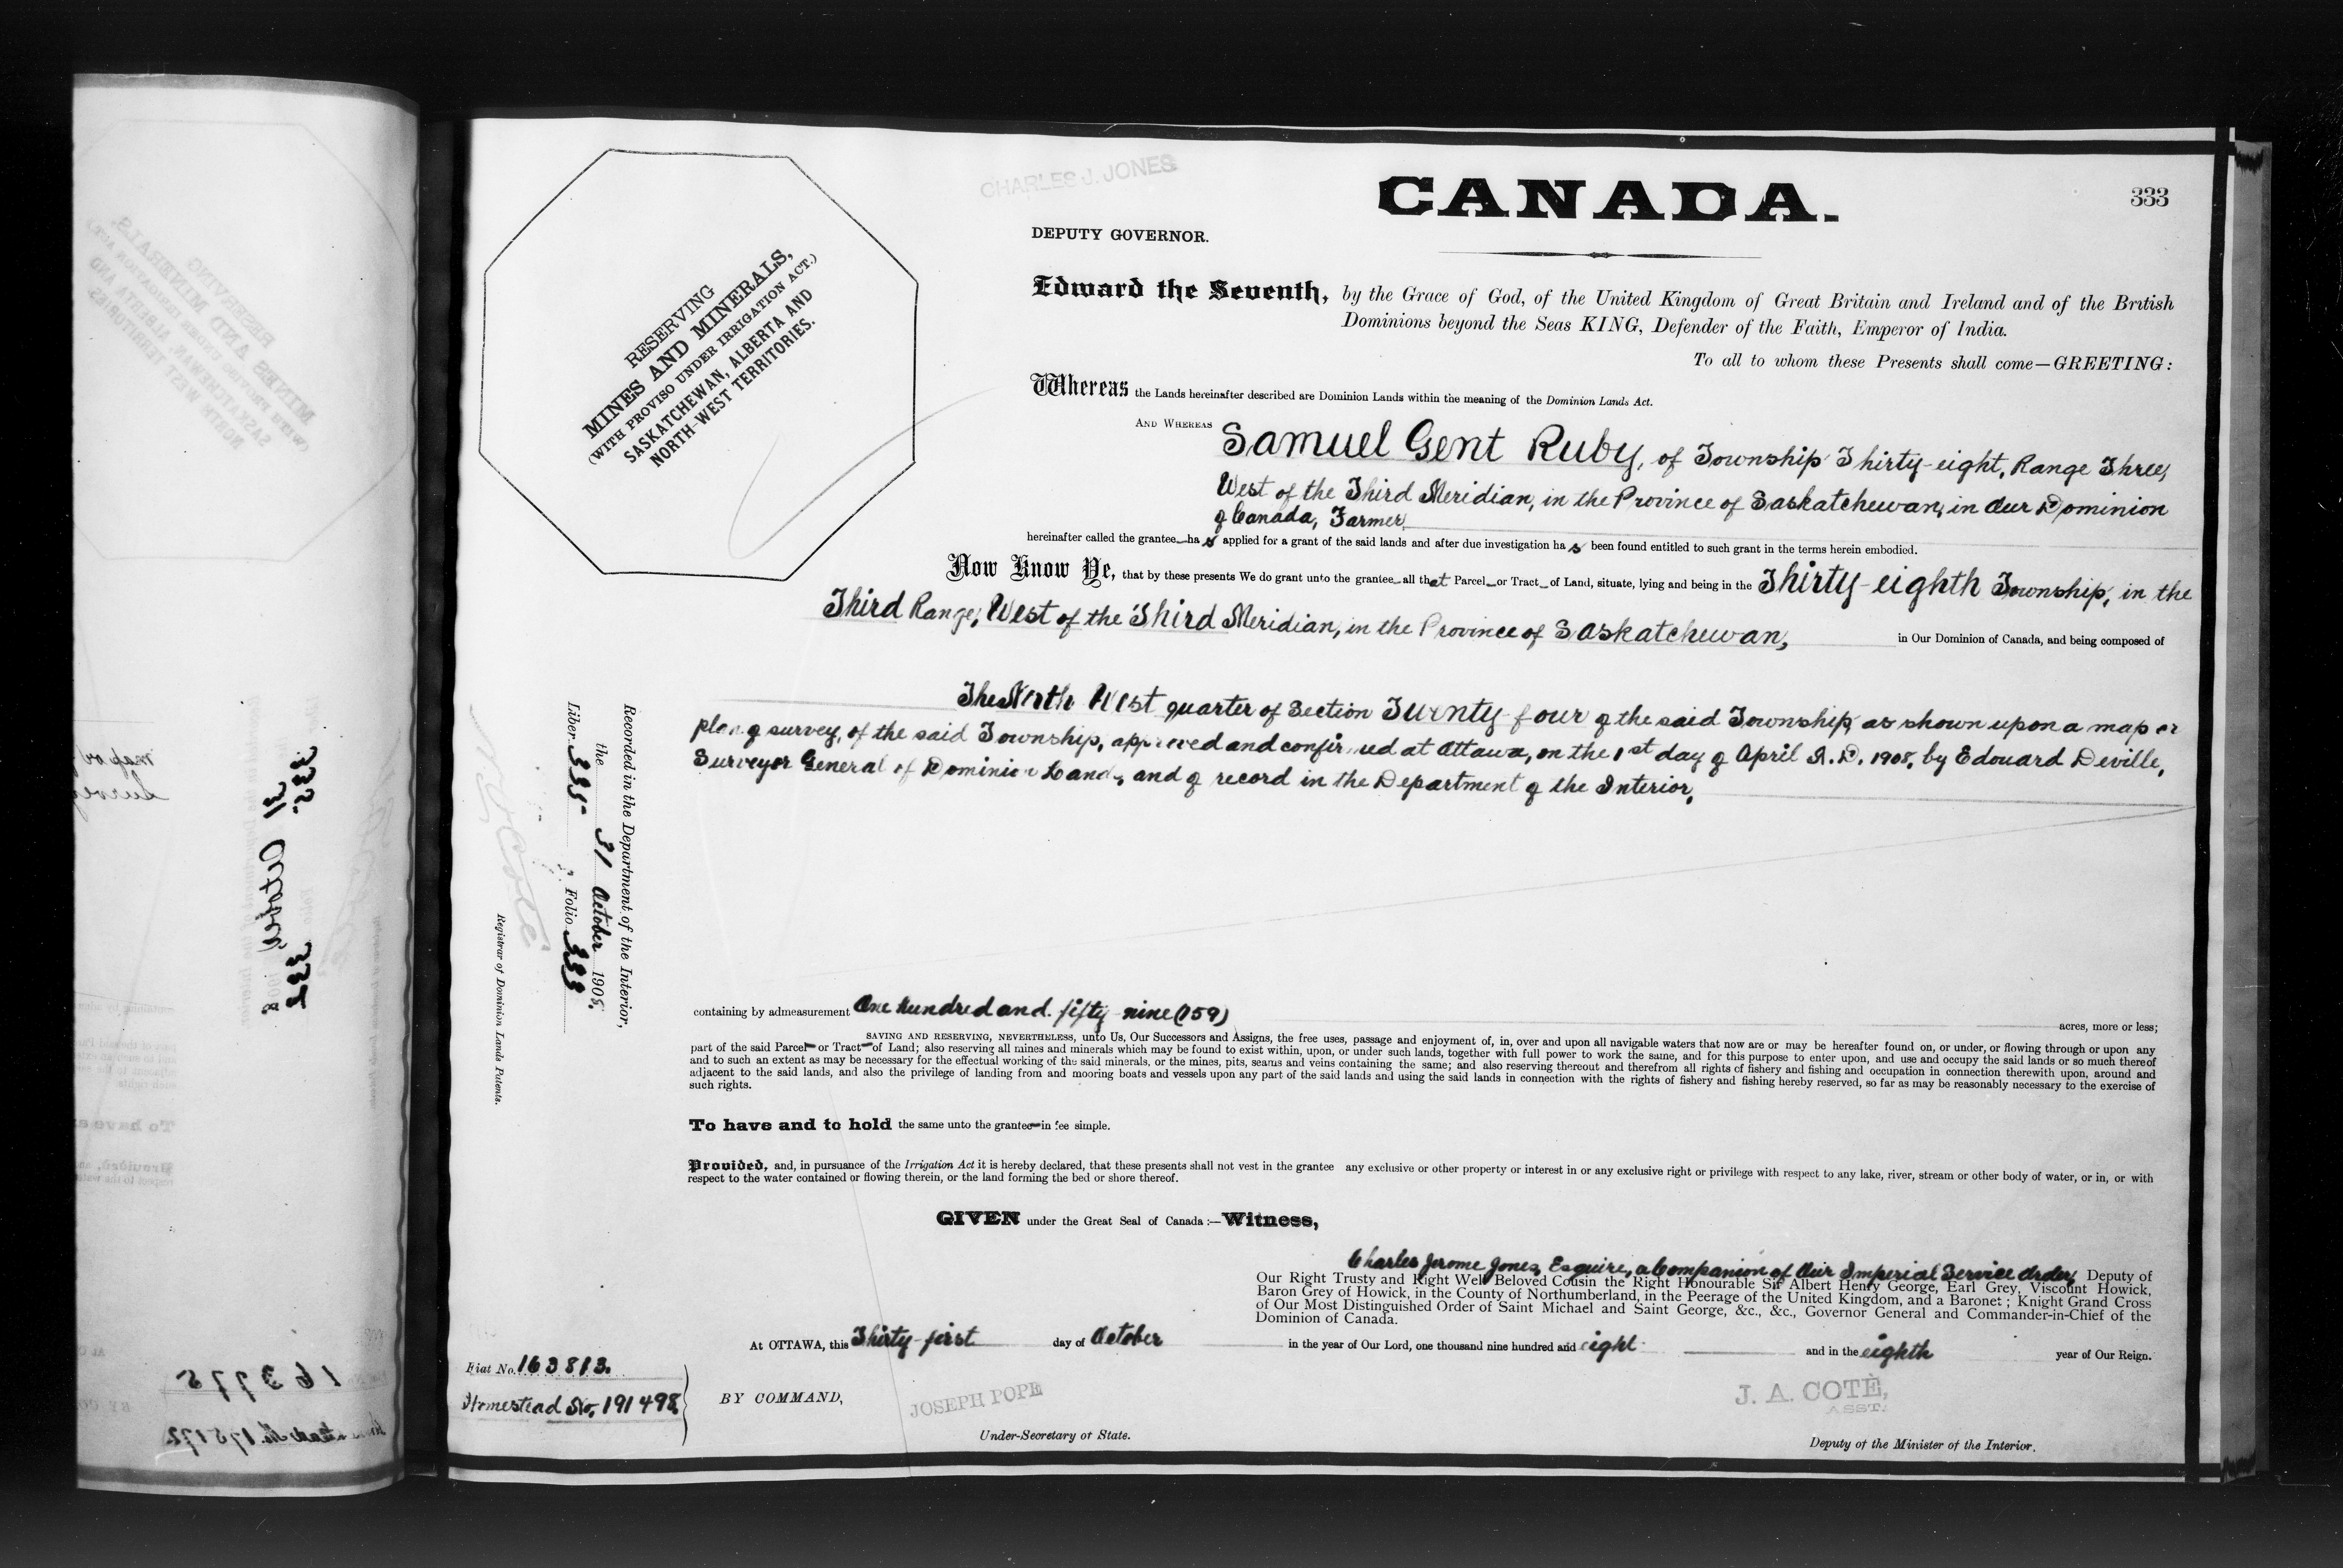 CHARLES J. JONES
CANADA.
333
DEPUTY GOVERNOR.
RESERVING
MINES AND MINERALS,
(WITH PROVISO UNDER IRRIGATION ACT.)
SASKATCHEWAN, ALBERTA AND
NORTH-WEST TERRITORIES.
Edward the Seventh, by the Grace of God, of the United Kingdom of Great Britain and Ireland and of the British
Dominions beyond the Seas KING, Defender of the Faith, Emperor of India.
To all to whom these Presents shall come—GREETING:
Whereas the Lands hereinafter described are Dominion Lands within the meaning of the Dominion Lands Act.
AND WHEREAS Samuel Gent Ruby, of Township Thirty-eight, Range Three,
West of the Third Meridian, in the Province of Saskatchewan, in Our Dominion
of Canada, Farmer,
hereinafter called the grantee ha s applied for a grant of the said lands and after due investigation ha s been found entitled to such grant in the terms herein embodied.
Now Know Ye, that by these presents We do grant unto the grantee all that Parcel or Tract of Land, situate, lying and being in the Thirty-eighth Township, in the
Third Range, West of the Third Meridian, in the Province of Saskatchewan, in Our Dominion of Canada, and being composed of
The North West quarter of Section Twenty-four of the said Township, as shown upon a map or
plan of survey, of the said Township, approved and confirmed at Ottawa, on the 1st day of April A.D. 1908, by Edouard Deville,
Surveyor General of Dominion Lands, and of record in the Department of the Interior,
Recorded in the Department of the Interior,
the 31 October 1908.
Liber 335 Folio 333
Registrar of Dominion Lands Patents.
containing by admeasurement One hundred and fifty-nine (159) acres, more or less;
SAVING AND RESERVING, NEVERTHELESS, unto Us, Our Successors and Assigns, the free uses, passage and enjoyment of, in, over and upon all navigable waters that now are or may be hereafter found on, or under, or flowing through or upon any
part of the said Parcel or Tract of Land; also reserving all mines and minerals which may be found to exist within, upon, or under such lands, together with full power to work the same, and for this purpose to enter upon, and use and occupy the said lands or so much thereof
and to such an extent as may be necessary for the effectual working of the said minerals, or the mines, pits, seams and veins containing the same; and also reserving thereout and therefrom all rights of fishery and fishing and occupation in connection therewith upon, around and
adjacent to the said lands, and also the privilege of landing from and mooring boats and vessels upon any part of the said lands and using the said lands in connection with the rights of fishery and fishing hereby reserved, so far as may be reasonably necessary to the exercise of
such rights.
To have and to hold the same unto the grantee in fee simple.
Provided, and, in pursuance of the Irrigation Act it is hereby declared, that these presents shall not vest in the grantee any exclusive or other property or interest in or any exclusive right or privilege with respect to any lake, river, stream or other body of water, or in, or with
respect to the water contained or flowing therein, or the land forming the bed or shore thereof.
GIVEN under the Great Seal of Canada:—Witness,
Charles Jerome Jones, Esquire, a Companion of Our Imperial Service Order, Deputy of
Our Right Trusty and Right Well Beloved Cousin the Right Honourable Sir Albert Henry George, Earl Grey, Viscount Howick,
Baron Grey of Howick, in the County of Northumberland, in the Peerage of the United Kingdom, and a Baronet; Knight Grand Cross
of Our Most Distinguished Order of Saint Michael and Saint George, &c., &c., Governor General and Commander-in-Chief of the
Dominion of Canada.
At OTTAWA, this Thirty-first day of October in the year of Our Lord, one thousand nine hundred and eight and in the eighth year of Our Reign.
Fiat No. 163813.
Homestead No. 191498
BY COMMAND,
JOSEPH POPE
Under-Secretary of State.
J. A. COTÈ,
ASST.
Deputy of the Minister of the Interior.